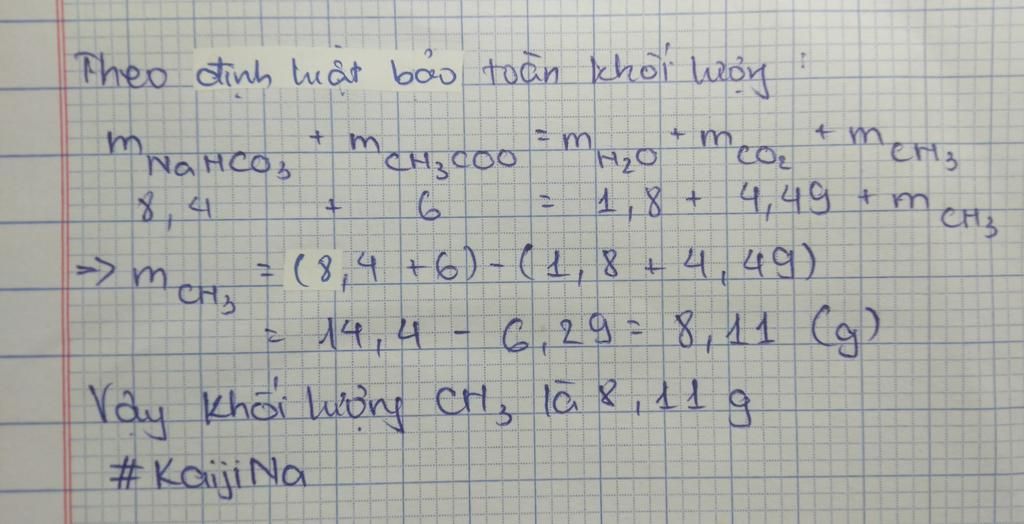 Theo định luật bảo toàn khối lượng :
m NaHCO₃ + m CH₃COO = m H₂O + m CO₂ + m CH₃
8,4 + 6 = 1,8 + 4,49 + m CH₃
=> m CH₃ = (8,4 + 6) - (1,8 + 4,49)
= 14,4 - 6,29 = 8,11 (g)
Vậy khối lượng CH₃ là 8,11 g
#KaijiNa